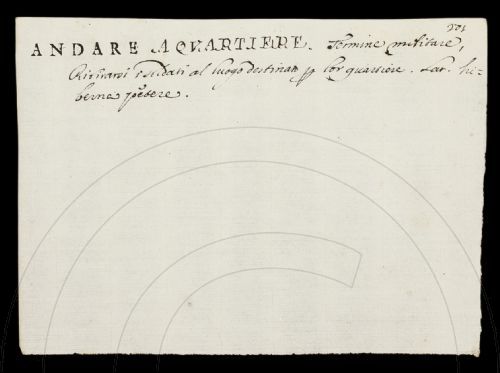 201
ANDARE A QVARTIERE. Termine militare,
Ritirarsi i soldati al luogo destinato p lor quartiere. Lat. hi-
berna petere.